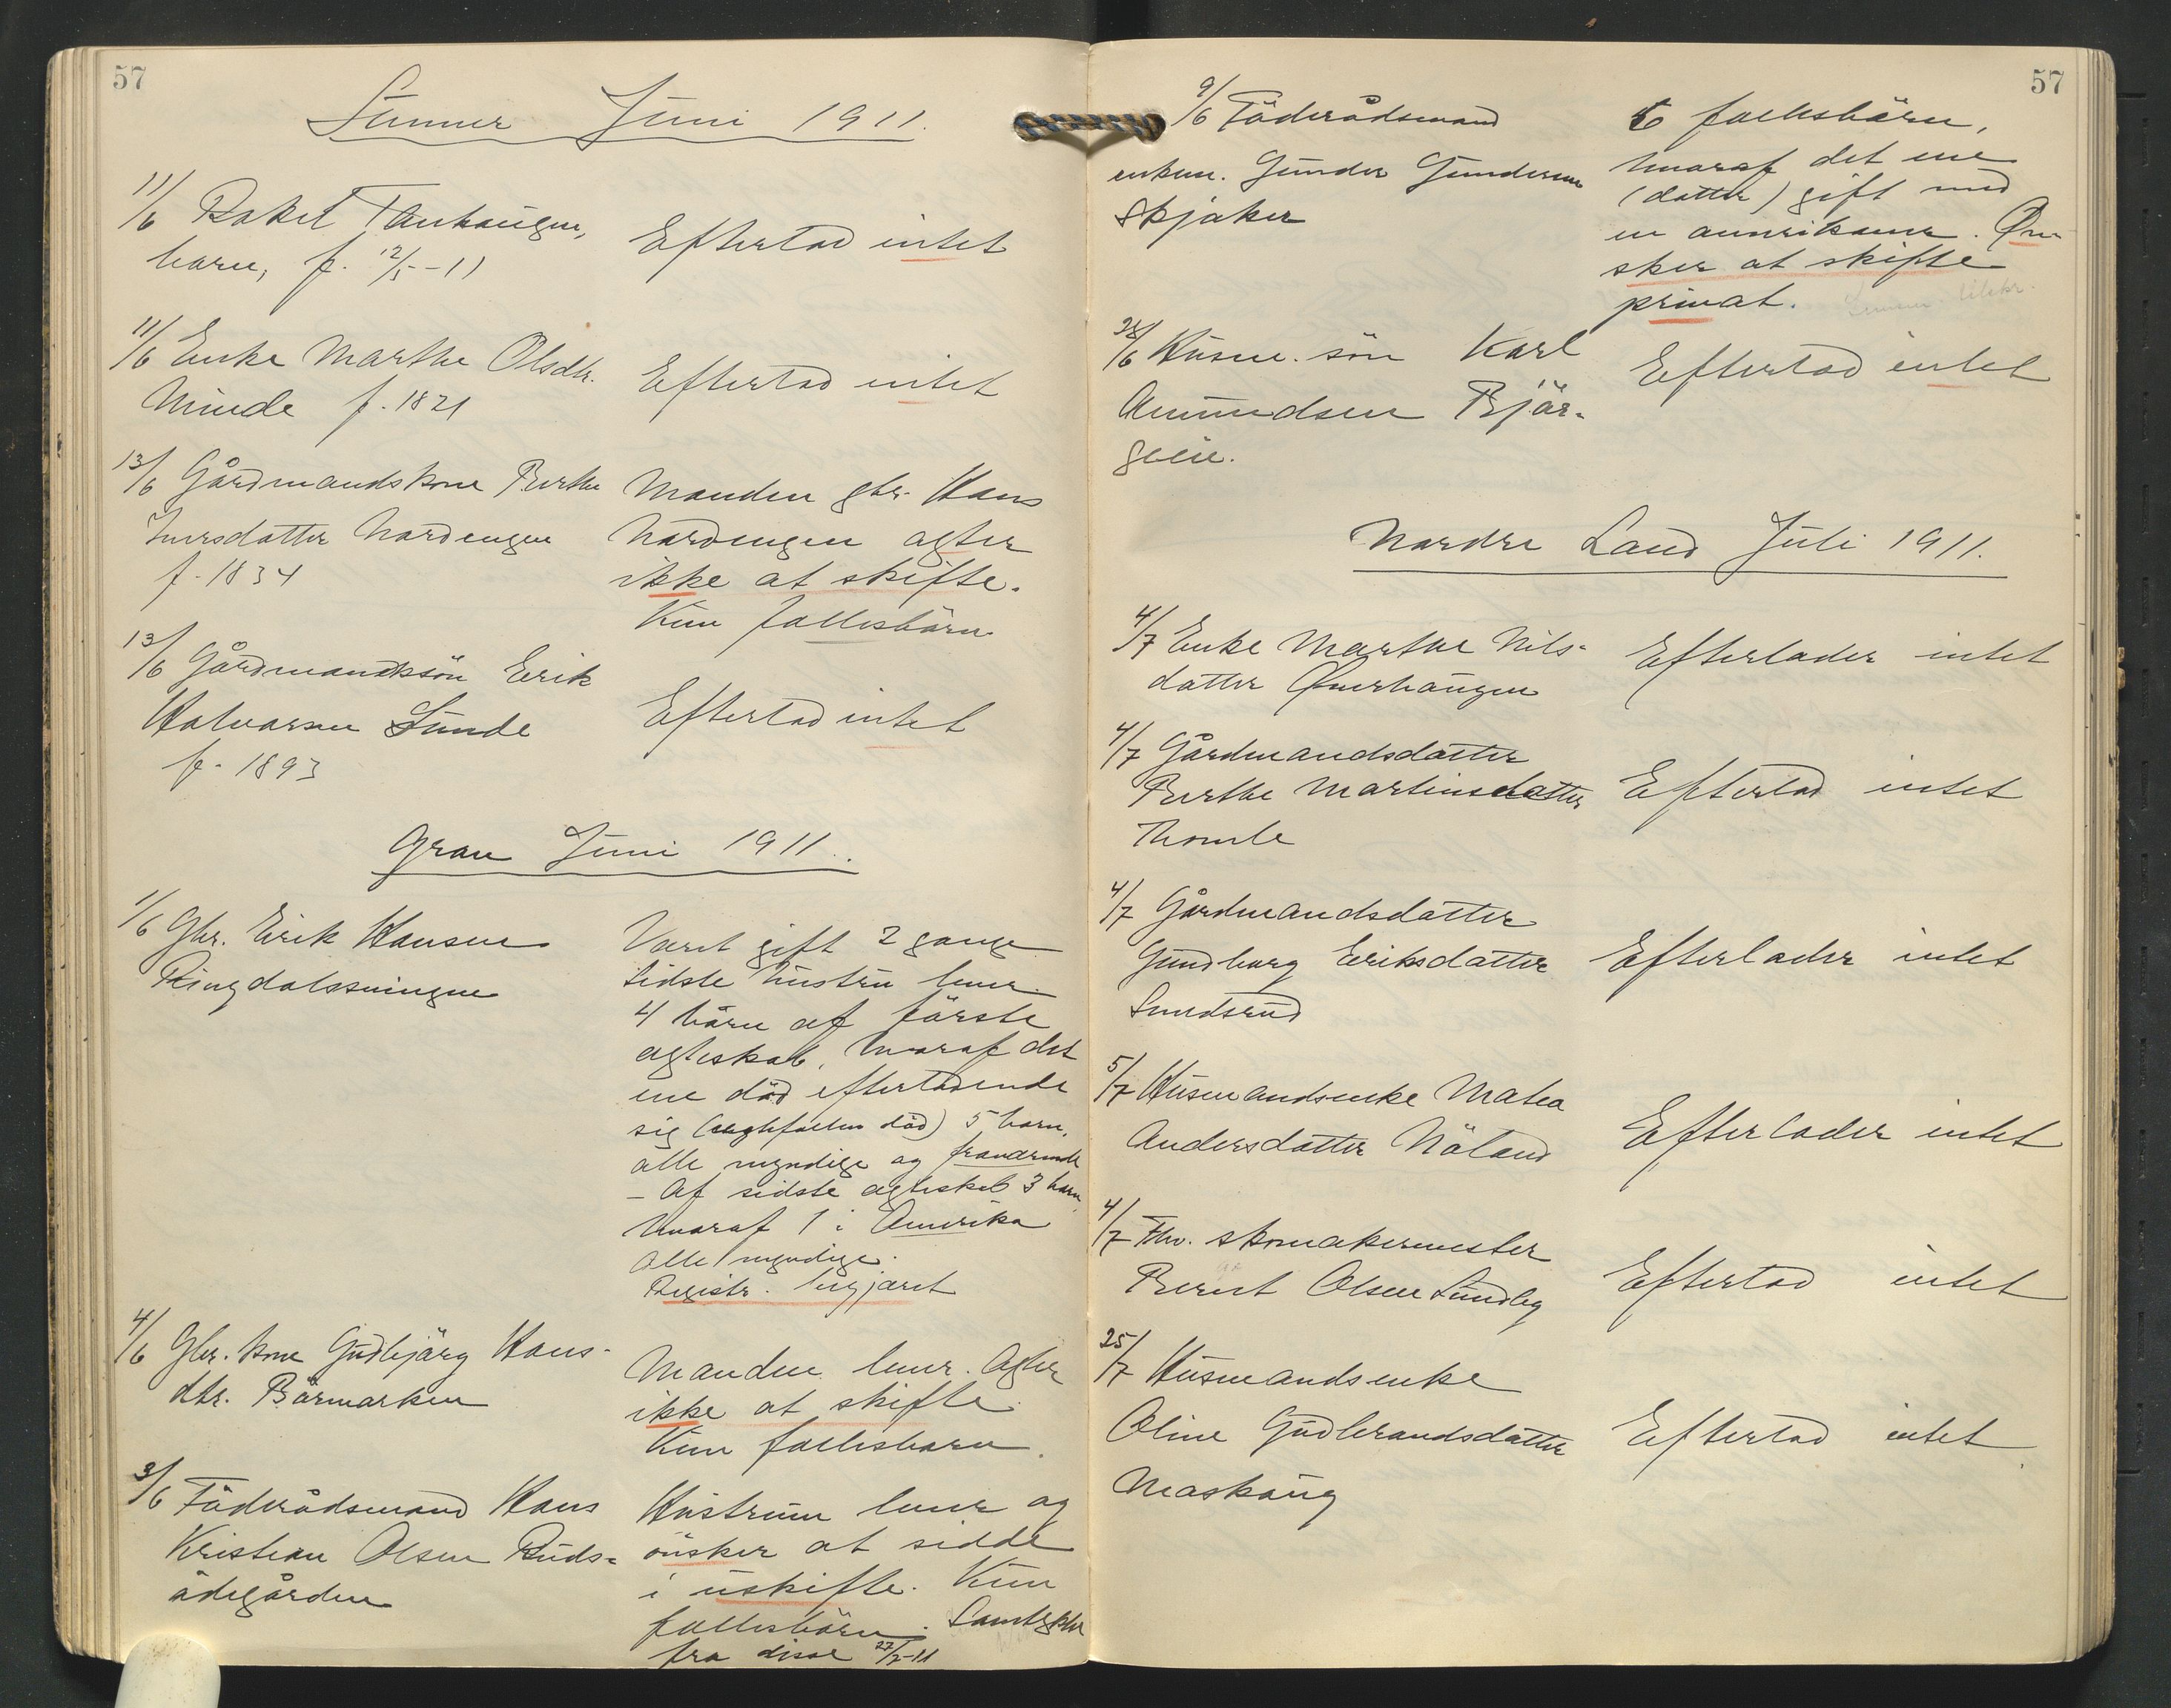 57
Lunner Juni 1911.
11/6 Rakel Tanhaugen,
barn, f. 12/5-11
Efterlod intet
11/6 Enke Marthe Olsdtr.
Minde f. 1821
Efterlod intet
13/6 Gårdmandskone Berthe
Iversdatter Nordengen
f. 1834
Manden gbr. Hans
Nordengen agter
ikke at skifte.
Kun fællesbörn
13/6 Gårdmandssön Erik
Halvorsen Lunde
f. 1893
Efterlod intet
Gran Juni 1911.
1/6 Gbr. Erik Hansen
Ringdalssvingen
Været gift 2 gange
sidste hustru lever.
4 börn af förste
ægteskab, hvoraf det
ene död efterladende
sig (ægtefællen död) 5 barn,
alle myndige og fraværende
– Af sidste ægteskab 3 barn,
hvoraf 1 i Amerika
alle myndige.
Registr. begjæret
4/6 Gbr. kone Gudbjörg Hans-
dtr. Börmarken
Manden lever. Agter
ikke at skifte.
Kun fællesbarn.
3/6 Föderådsmand Hans
Kristian Olsen Ruds-
ödegården
Hustruen lever og
önsker at sidde
i uskifte. Kun
fællesbörn. Samtykke
fra disse 27/7-11
57
9/6 Föderådsmand
enkem. Gunder Gundersen
Skjaker
6 fællesbörn,
hvoraf det ene
(datter) gift med
en amerikaner. Øn-
sker at skifte
privat.
28/6 Husm. sön Karl
Amundsen Björ-
geeie.
Efterlod intet
Nordre Land Juli 1911.
4/7 Enke Marthe Nils-
datter Øverhaugen
Efterlader intet
4/7 Gårdmandsdatter
Berthe Martinsdatter
Thomle
Efterlod intet
4/7 Gårdmandsdatter
Gundborg Eriksdatter
Sundsrud
Efterlader intet
5/7 Husmandsenke Matea
Andersdatter Nöland
Efterlader intet
4/7 Fhv. skomakermester
Bernt Olsen Lundby
Efterlod intet
25/7 Husmandsenke
Oline Gudbrandsdatter
Maskaug
Efterlod intet